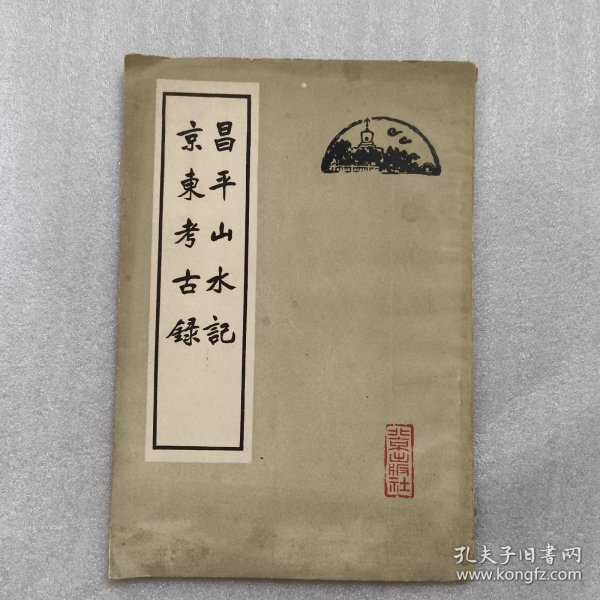 昌平山水記
京東考古録
北京出版社
孔夫子旧書网
www.kongfz.com